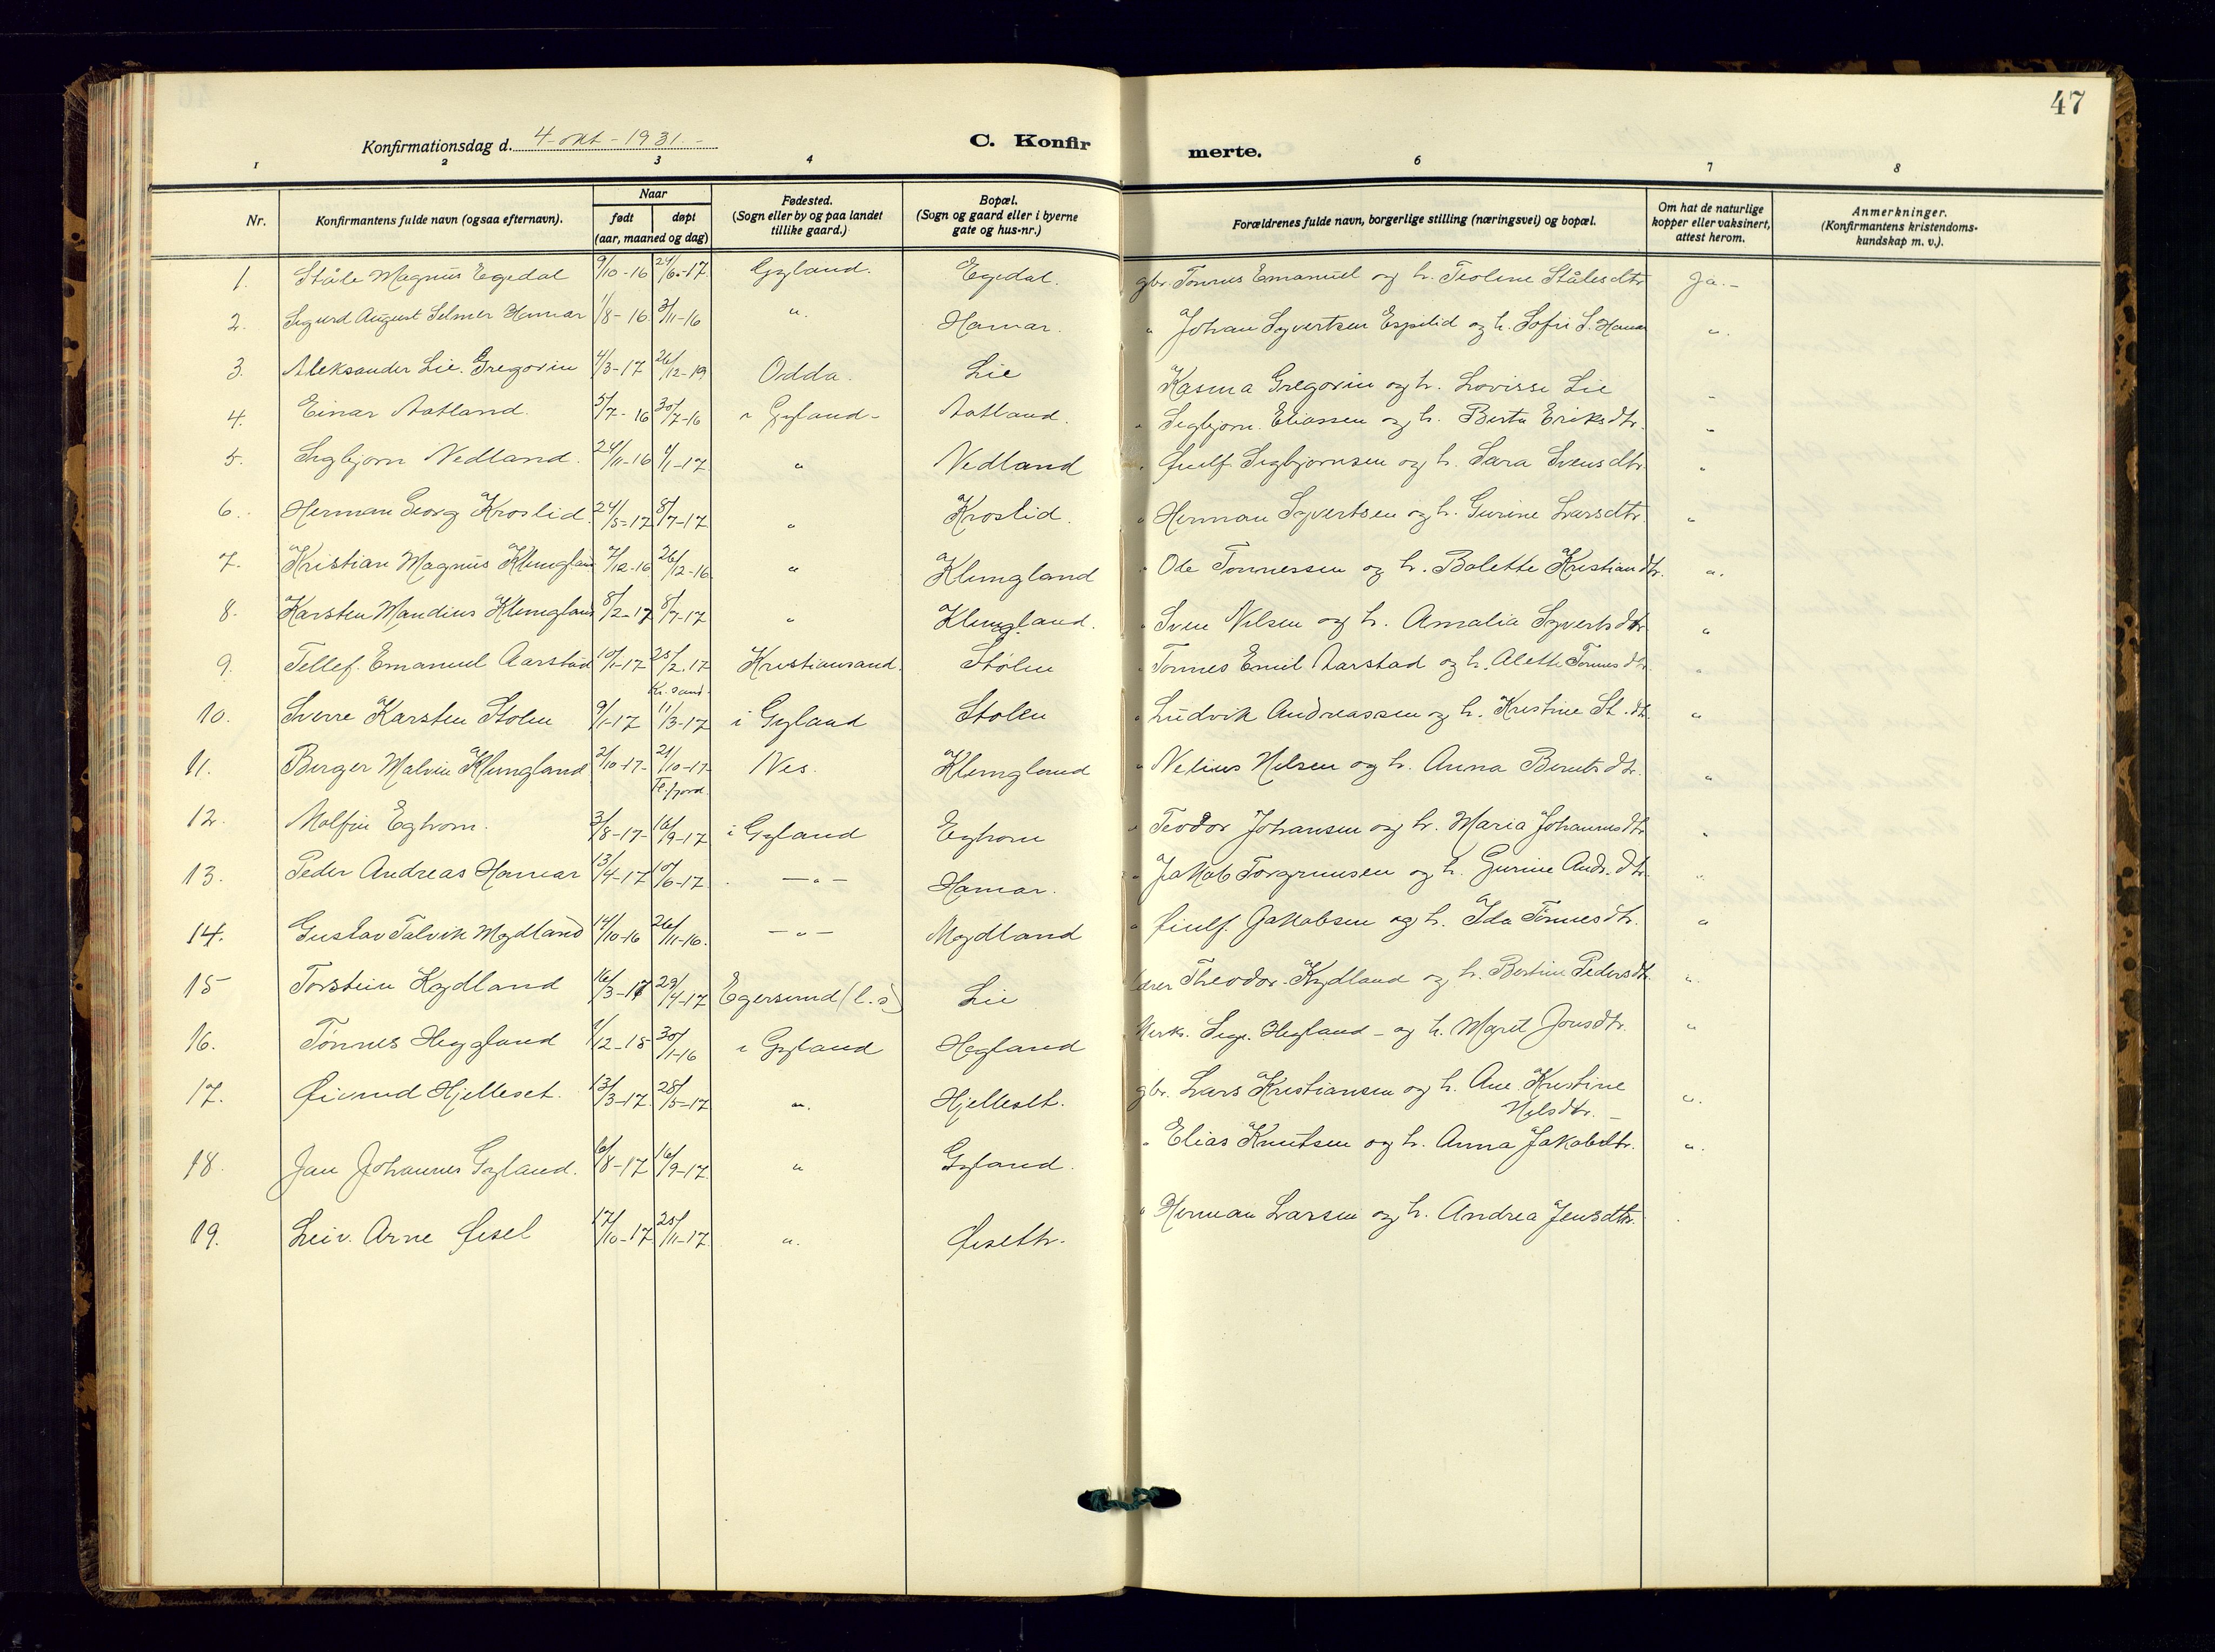 47
Konfirmationsdag d. 4-okt-1931.-
C. Konfir merte.
1 2 3 4 6 7 8
Nr.
Konfirmantens fulde navn (ogsaa efternavn).
Naar
født døpt
(aar, maaned og dag)
Fødested.
(Sogn eller by og paa landet
tillike gaard.)
Bopæl.
(Sogn og gaard eller i byerne
gate og hus-nr.)
Forældrenes fulde navn, borgerlige stilling (næringsvei) og bopæl.
Om hat de naturlige
kopper eller vaksinert,
attest herom.
Anmerkninger.
(Konfirmantens kristendoms-
kundskap m. v.).
1. Ståle Magnus Egedal 9/10-16 24/6-17 Gyland. Egedal. gbr. Tønnes Emanuel og h. Teoline Stålesdtr Ja.-
2. Sigurd August Selmer Hamar 1/8-16 3/11-16 " Hamar. " Johan Syvertsen Espelid og h. Sofie S. Hamar "
3. Aleksander Lie. Gregorin 4/3-17 26/12-19 Odda. Lie Kasma Gregorin og h. Lovisse Lie "
4. Einar Aatland. 5/7-16 30/7-16 i Gyland- Aatland. " Segbjørn. Eliassen og h. Berta Eriksdtr. "
5. Sigbjørn Nedland. 24/11-16 1/1-17 " Nedland " Øiulf Sigbjørnsen og h. Sara Svensdtr. "
6. Herman Georg Kroslid. 24/5-17 8/7-17 " Kroslid. " Herman Syvertsen og h. Gurine Larsdtr. "
7. Kristian Magnus Klungland 7/12-16 26/12-16 " Klungland " Ole Tønnessen og h. Bolette Kristiandtr. "
8. Karsten Mandius Klungland 8/2-17 8/7-17 " Klungland. " Sven Nilsen og h. Amalia Syvertsdtr. "
9. Tellef. Emanuel Aarstad 10/1-17 25/2.17 Kristiansand. Stølen " Tønnes Emil Aarstad og h. Alette Tønnesdtr. "
Kr.sand.
10. Sverre Karsten Stølen 9/1-17 11/3-17 i Gyland Stølen " Ludvik Andreassen og h. Kristine St. dtr. "
11. Berger Malvin Klungland 2/10-17- 21/10-17- Nes. Klungland " Nelius Nilsen og h. Anna Berntsdtr. "
Fl.fjord.
12. Molfin Eghom. 3/8-17- 16/9-17 i Gyland Eghom " Teodor Johansen og h. Maria Johannesdtr "
13. Peder Andreas Hamar 13/4-17 10/6-17 -"- Hamar. " Jakob Torgrimsen og h. Gurine Andr.dtr. "
14. Gustav Talvik Mydland 14/10-16 26/11-16. -"- Mydland " Øiulf. Jakobsen og h. Ida Tønnesdtr. "
15 Torstein Kydland 16/3-17 29/4-17 Egersund (l.s) Lie Lærer Theodor. Kydland og h. Bertine Pedersdtr. "
16. Tønnes Heggland 1/12-15 30/1-16 i Gyland Hegland Kirks. Sigv. Hegland - og h. Marit Jonsdtr. "
17. Øivind Hjelleset. 13/3-17 28/5-17 " Hjelleset. gbr. Lars Kristiansen og h. Ane Kristine
Nilsdtr. - "
18. Jan Johannes Gyland. 6/8-17 16/9-17. " Gyland. " Elias Knutsen og h. Anna Jakobdtr. "
19. Leiv. Arne Øisel 17/10-17 25/11-17 " Øiseltr. " Herman Larsen og h. Andrea Jensdtr.